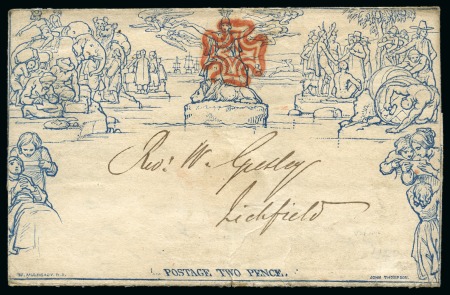 Revd. W. Gresley
Lichfield
W. MULREADY. R.A.
POSTAGE TWO PENCE.
JOHN THOMPSON.